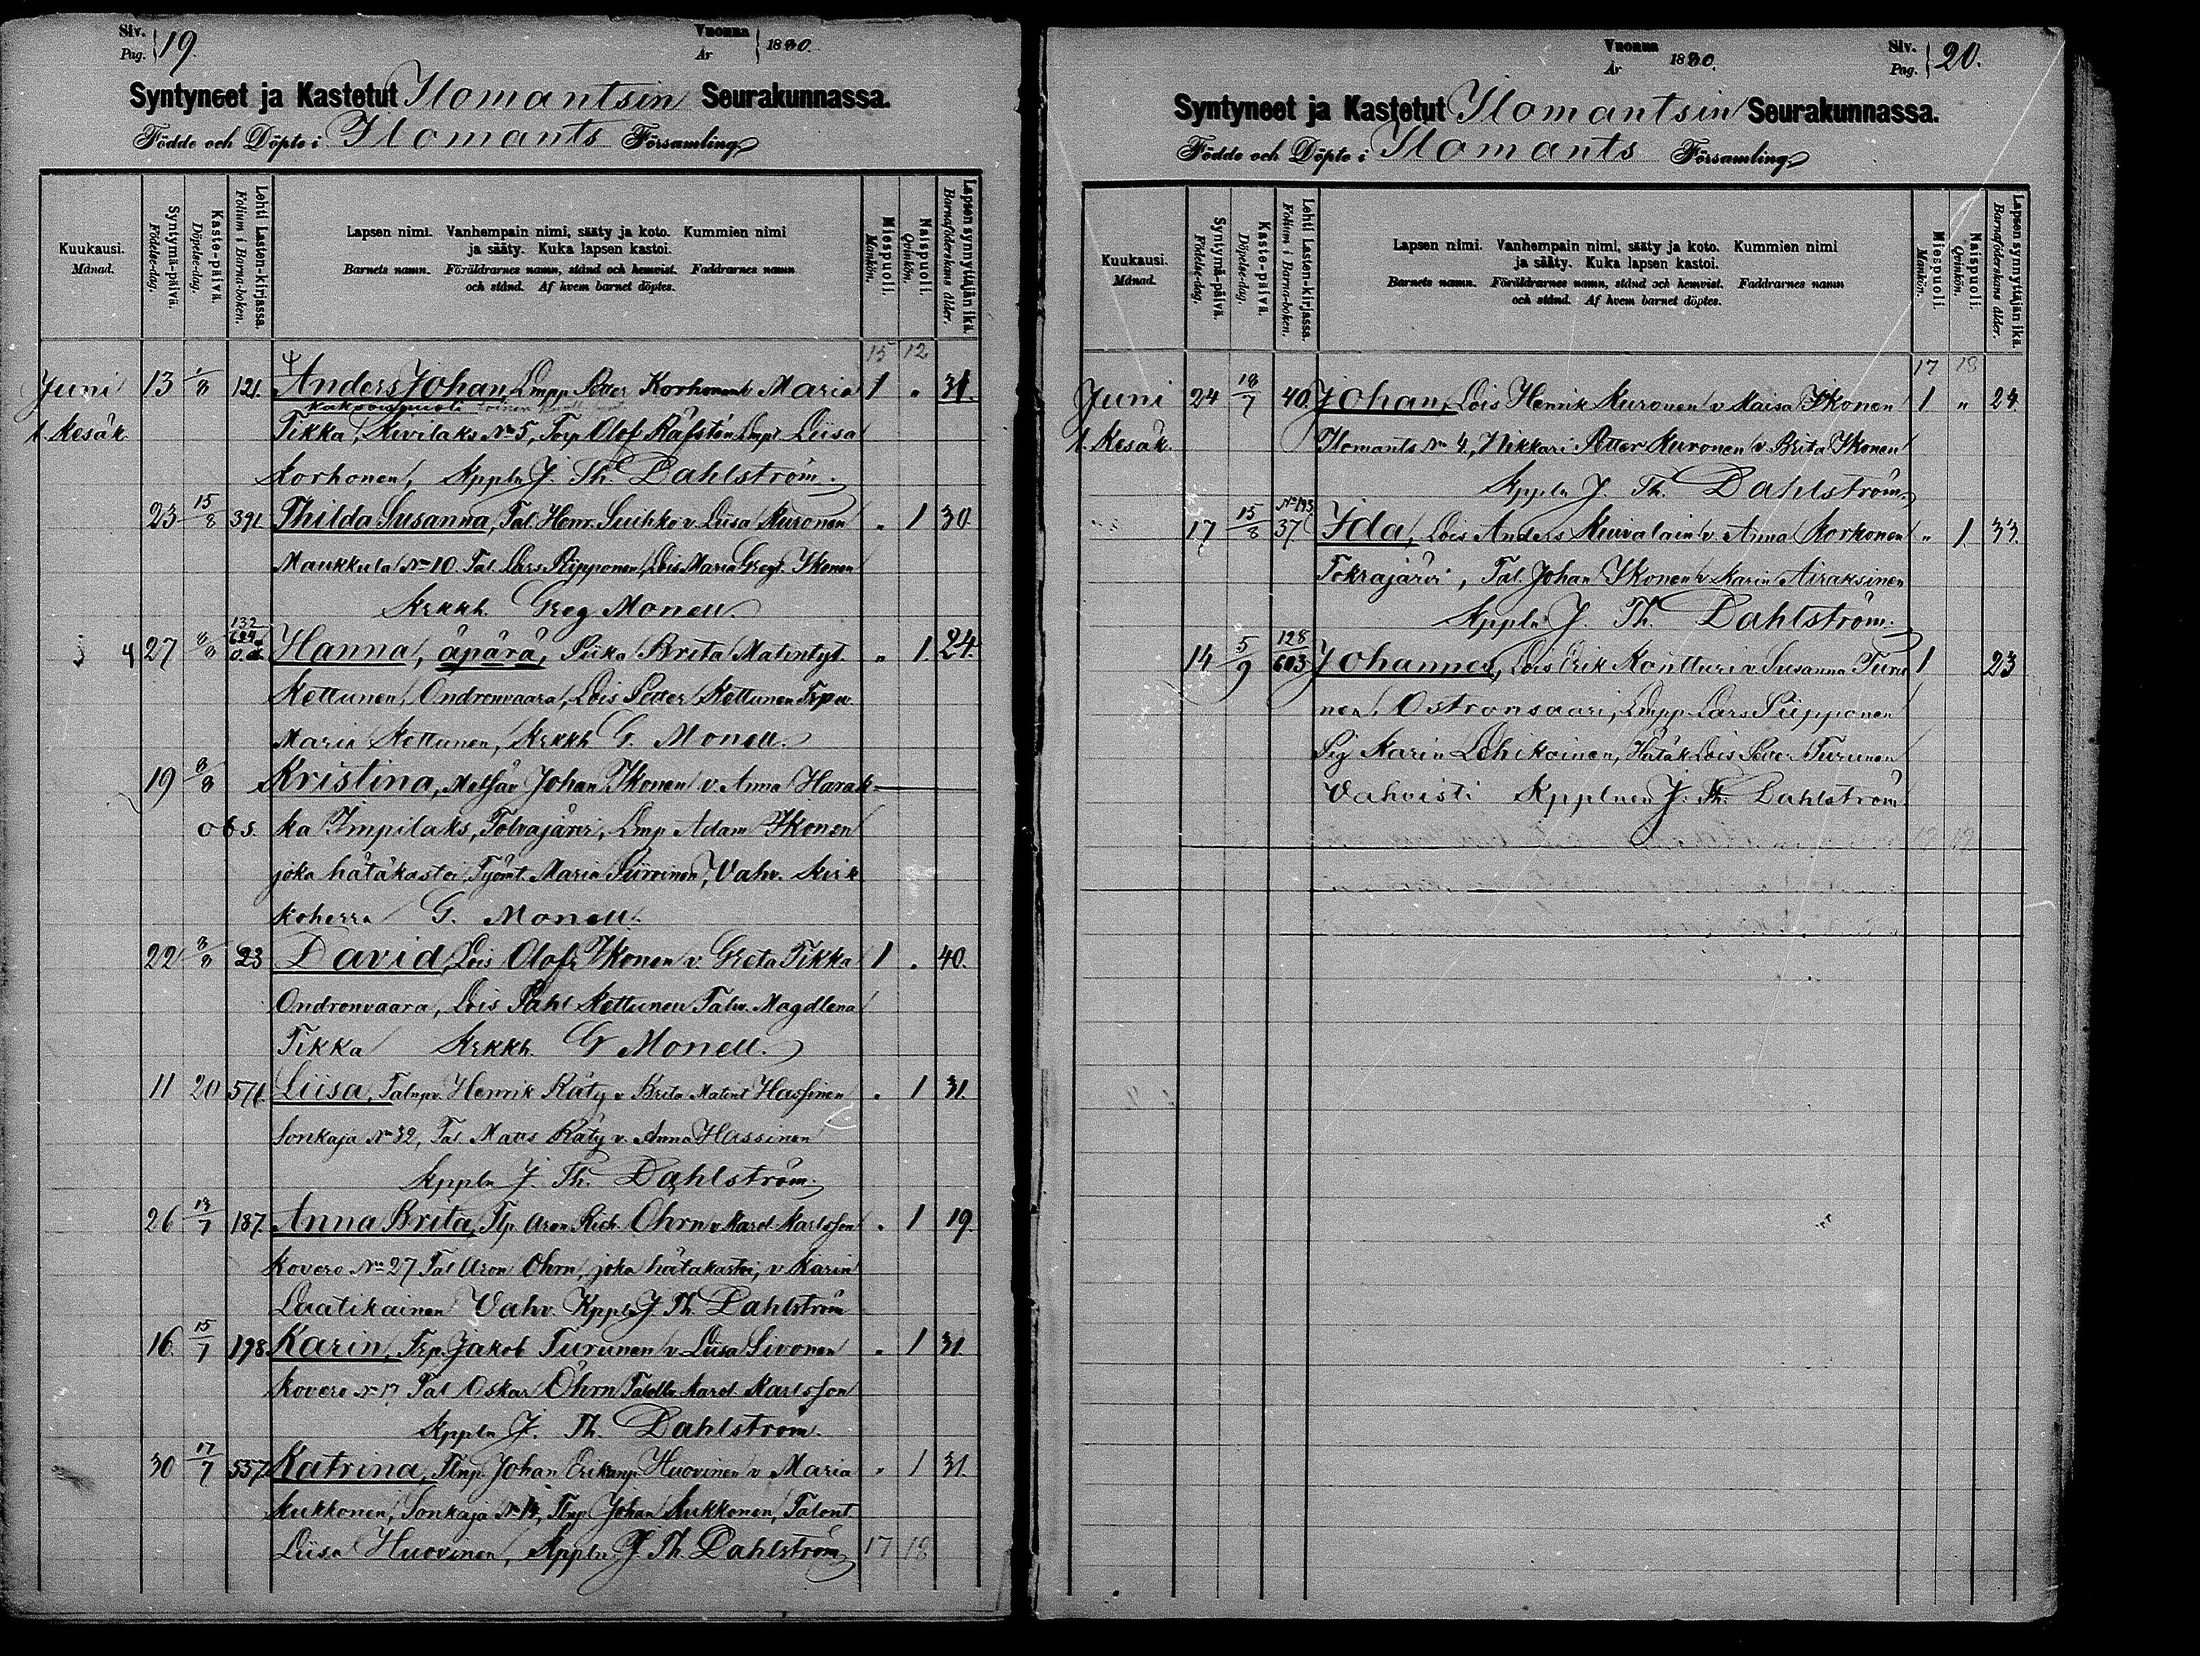 Siv. Pag. 19.
Vuonna År 1880.
Syntyneet ja Kastetut Ilomantsin Seurakunnassa.
Födde och Döpte i Ilomants Församling
Kuukausi. Månad.
Syntymä-päivä. Födelse-dag.
Kaste-päivä. Döpelse-dag.
Lehti Lasten-kirjassa. Folium i Barna-boken.
Lapsen nimi. Vanhempain nimi, sääty ja koto. Kummien nimi
ja sääty. Kuka lapsen kastoi.
Barnets namn. Föräldrarnes namn, stånd och hemvist. Faddrarnes namn
och stånd. Af hvem barnet döptes.
Miespuoli. Mankön.
Naispuoli. Qvinkön.
Lapsensynnyttäjän ikä. Barnaföderskans ålder.
15 12
Juni 13 121. Anders Johan, Lmpp Petter Korhonen v Maria 1 " 31.
l. Kesäk. Tikka, Kivilaks No 5, Torp Olof Räfsten Lmpt. Liisa
Korhonen, Kppln J. Th. Dahlström.
23 15/8 391. Thilda Susanna, Tal. Henr. Suihko v. Liisa Kuronen " 1 30.
Maukkula No 10. Tal Lars Piipponen, Lois Maria Gregt. Ikonen
Krkkh. Greg Monell.
132
27 8/8 Hanna, äpärä, Piika Brita Matintyt. " 1 24.
Kettunen, Ondronvaara, Lois Petter Kettunen Trp v.
Maria Kettunen, Krkkh G. Monell.
19 8/8 Kristina, Metsäv Johan Ikonen v. Anna Harak-
obs. ka Impilaks, Tolvajärvi, Lmp Adam Ikonen
joka hätäkastoi, Työmt. Maria Piiroinen, Vahv. Kirk
koherra G. Monell.
22 8/8 23 David, Lois Olof Ikonen v. Greta Tikka 1 " 40.
Ondronvaara, Lois Påhl Kettunen Talv. Magdlena
Tikka Krkkh. G Monell.
11 20 571. Liisa, Talnpv. Henrik Räty v Brita Matint Hassinen " 1 31.
Sonkaja No 32, Tal Matts Räty v. Anna Hassinen
Kppln J. Th. Dahlström.
26 18/7 187. Anna Brita, Tlp Aron Rich. Öhrn v. Karol Karlsson " 1 19.
Kovero No 27 Tal Aron Öhrn, joka hätäkastoi, v Karin
Laatikainen Vahv. Kppln J Th. Dahlström
16. 15/7 198. Karin, Trp. Jakob Turunen v. Liisa Sivonen " 1 31.
Kovero No 17 Tal Oskar Öhrn Karol Karlsson
Kppln J. Th. Dahlström.
30 17/7 557. Katrina, Tlnp Johan Erikinp. Huovinen v Maria " 1 31.
Kukkonen, Sonkaja No 14, Tlnp Johan Kukkonen, Talont.
Liisa Huovinen, Kppln J. Th. Dahlström 17 18
Vuonna År 1880.
Siv. Pag. 20.
Syntyneet ja Kastetut Ilomantsin Seurakunnassa.
Födde och Döpte i Ilomants Församling
Kuukausi. Månad.
Syntymä-päivä. Födelse-dag.
Kaste-päivä. Döpelse-dag.
Lehti Lasten-kirjassa. Folium i Barna-boken.
Lapsen nimi. Vanhempain nimi, sääty ja koto. Kummien nimi
ja sääty. Kuka lapsen kastoi.
Barnets namn. Föräldrarnes namn, stånd och hemvist. Faddrarnes namn
och stånd. Af hvem barnet döptes.
Miespuoli. Mankön.
Naispuoli. Qvinkön.
Lapsensynnyttäjän ikä. Barnaföderskans ålder.
17 18
Juni 24 18/7 40. Johan, Lois Henrik Kuronen v Maisa Ikonen 1 " 24.
l. Kesäk. Ilomants No 4, Nikkari Petter Kuronen v. Brita Ikonen
Kppln J. Th. Dahlström.
17 15/8 No 193. 37 Ida, Lois Anders Kuivalain v. Anna Korhonen " 1. 33.
Tokrajärvi, Tal. Johan Ikonen v Karin Airaksinen
Kppln J. Th. Dahlström.
14 5/9 128 603. Johannes, Lois Erik Kontturi v. Susanna Turu 1 23
nen, Ostronsaari, Lmpp Lars Piipponen
Pig Karin Lehikoinen, Hätäk Lois Petter Turunen
Vahvisti Kpplnen J. Th. Dahlström